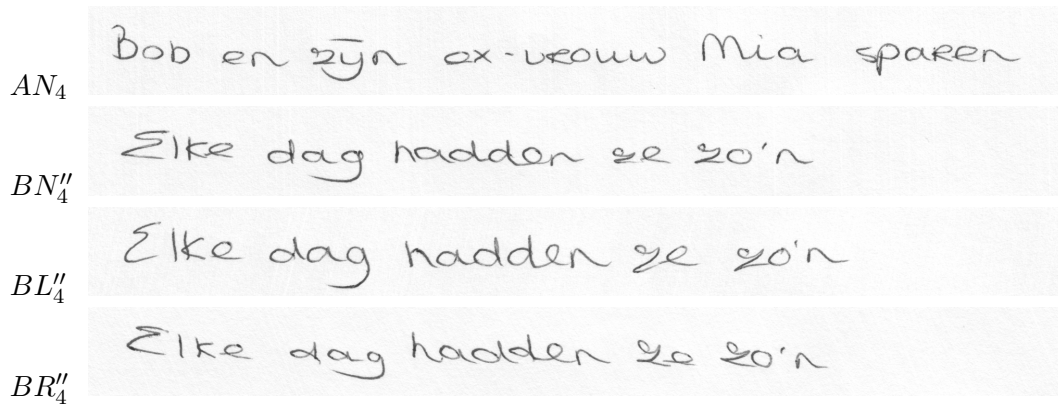 AN₄ Bob en zijn ex-vrouw Mia sparen
BN″₄ Elke dag hadden ze zo'n
BL″₄ Elke dag hadden ze zo'n
BR″₄ Elke dag hadden ze zo'n